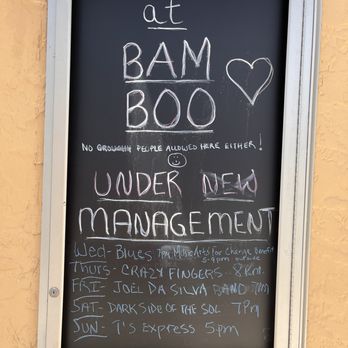 at
BAM
BOO
NO GROUCHY PEOPLE ALLOWED HERE EITHER!
UNDER NEW
MANAGEMENT
Wed- Blues 7pm Music Arts For Change Benefit
5-9pm outside
Thurs- CRAZY FINGERS 8pm
FRI- JOEL DA SILVA BAND 7pm
SAT- DARKSIDE OF THE SOL 7pm
SUN- T's EXPRESS 5pm